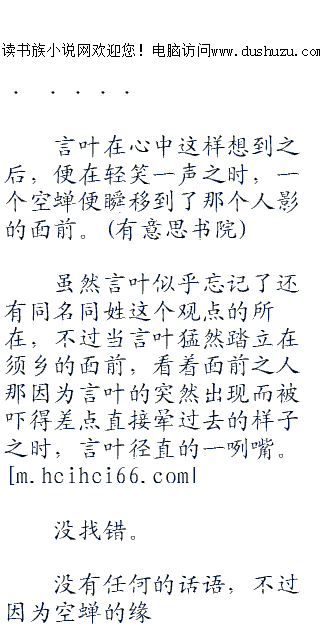 读书族小说网欢迎您！电脑访问www.dushuzu.com
· · · · · ·
言叶在心中这样想到之
后，便在轻笑一声之时，一
个空蝉便瞬移到了那个人影
的面前。(有意思书院)
虽然言叶似乎忘记了还
有同名同姓这个观点的所
在，不过当言叶猛然踏立在
须乡的面前，看着面前之人
那因为言叶的突然出现而被
吓得差点直接晕过去的样子
之时，言叶径直的一咧嘴。
[m.hcihci66.com|
没找错。
没有任何的话语，不过
因为空蝉的缘